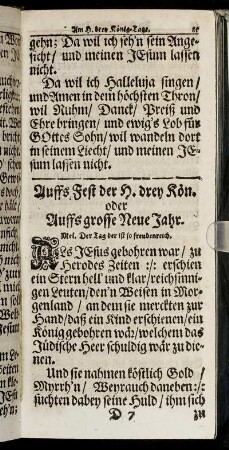 Am H. drey König-Tage.
gehn; Da wil ich seh'n sein Ange-
sicht/ und meinen JEsum lassen
nicht.
Da wil ich Halleluja singen/
und Amen in dem höchsten Thron/
wil Ruhm/ Danck/ Preiß und
Ehre bringen/ und ewig's Lob für
GOttes Sohn/ wil wandeln dort
in seinem Liecht/ und meinen JE-
sum lassen nicht.
Auffs Fest der H. drey Kön.
oder
Auffs grosse Neue Jahr.
Mel. Der Tag der ist so freudenreich.
ALs JEsus gebohren war/ zu
Herodes Zeiten :/: erschien
ein Stern hell und klar/ reichsinni-
gen Leuten/ den'n Weisen in Mor-
genland/ an dem sie merckten zur
Hand/ daß ein Kind erschienen/ ein
König gebohren wär/ welchem das
Jüdische Heer schuldig wär zu die-
nen.
Und sie nahmen köstlich Gold/
Myrrh'n/ Weyrauch daneben :/:
suchten dabey seine Huld/ ihm sich
D 7 zu